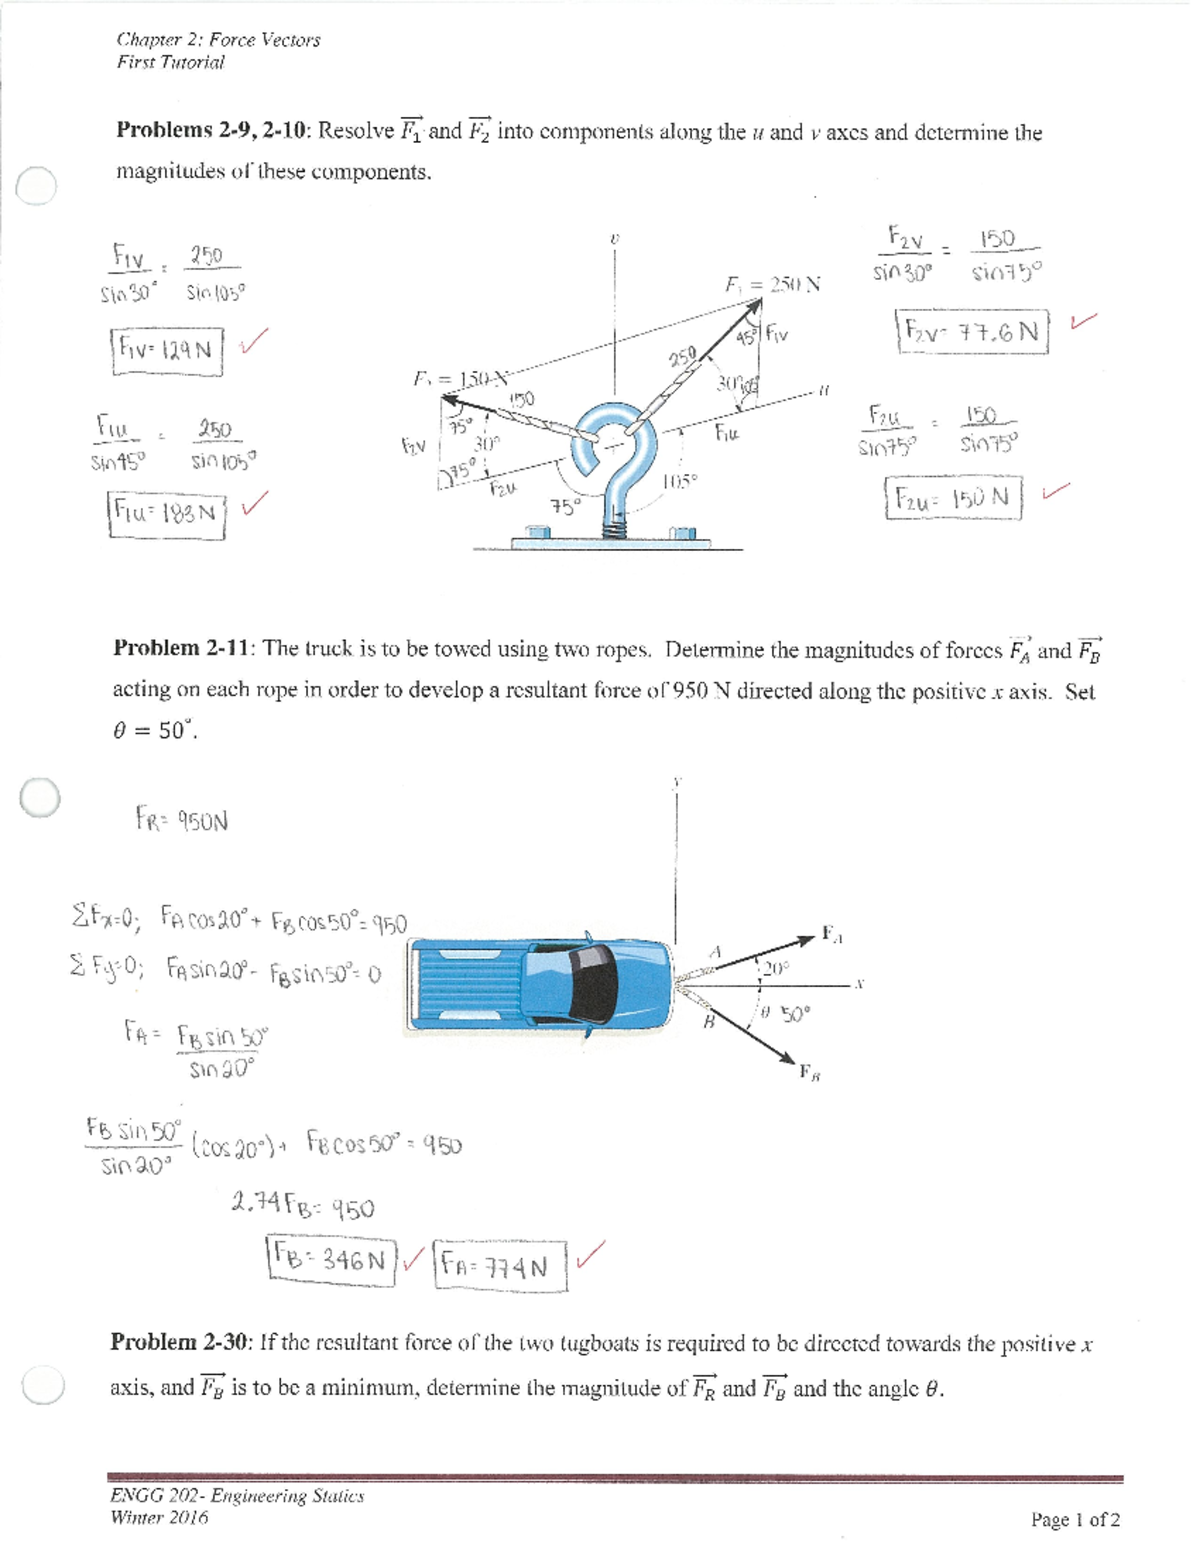 Chapter 2: Force Vectors
First Tutorial
Problems 2-9, 2-10: Resolve F₁ and F₂ into components along the u and v axes and determine the
magnitudes of these components.
F1v / sin30° = 250 / sin105°
F1v = 129 N
F1u / sin45° = 250 / sin105°
F1u = 183 N
v
F₁ = 250 N
45°
F1v
250
30°
u
F1u
F₂ = 150 N
150
75°
F2v
30°
75°
F2u
75°
105°
F2v / sin30° = 150 / sin75°
F2v = 77.6 N
F2u / sin75° = 150 / sin75°
F2u = 150 N
Problem 2-11: The truck is to be towed using two ropes. Determine the magnitudes of forces F_A and F_B
acting on each rope in order to develop a resultant force of 950 N directed along the positive x axis. Set
θ = 50°.
FR = 950N
ΣFx=0; FA cos20° + FB cos50° = 950
ΣFy=0; FA sin20° - FB sin50° = 0
FA = FB sin 50° / sin20°
FB sin50° / sin20° (cos20°) + FB cos50° = 950
2.74FB = 950
FB = 346 N FA = 774 N
y
A
F_A
20°
x
B
θ 50°
F_B
Problem 2-30: If the resultant force of the two tugboats is required to be directed towards the positive x
axis, and F_B is to be a minimum, determine the magnitude of F_R and F_B and the angle θ.
ENGG 202- Engineering Statics
Winter 2016
Page 1 of 2